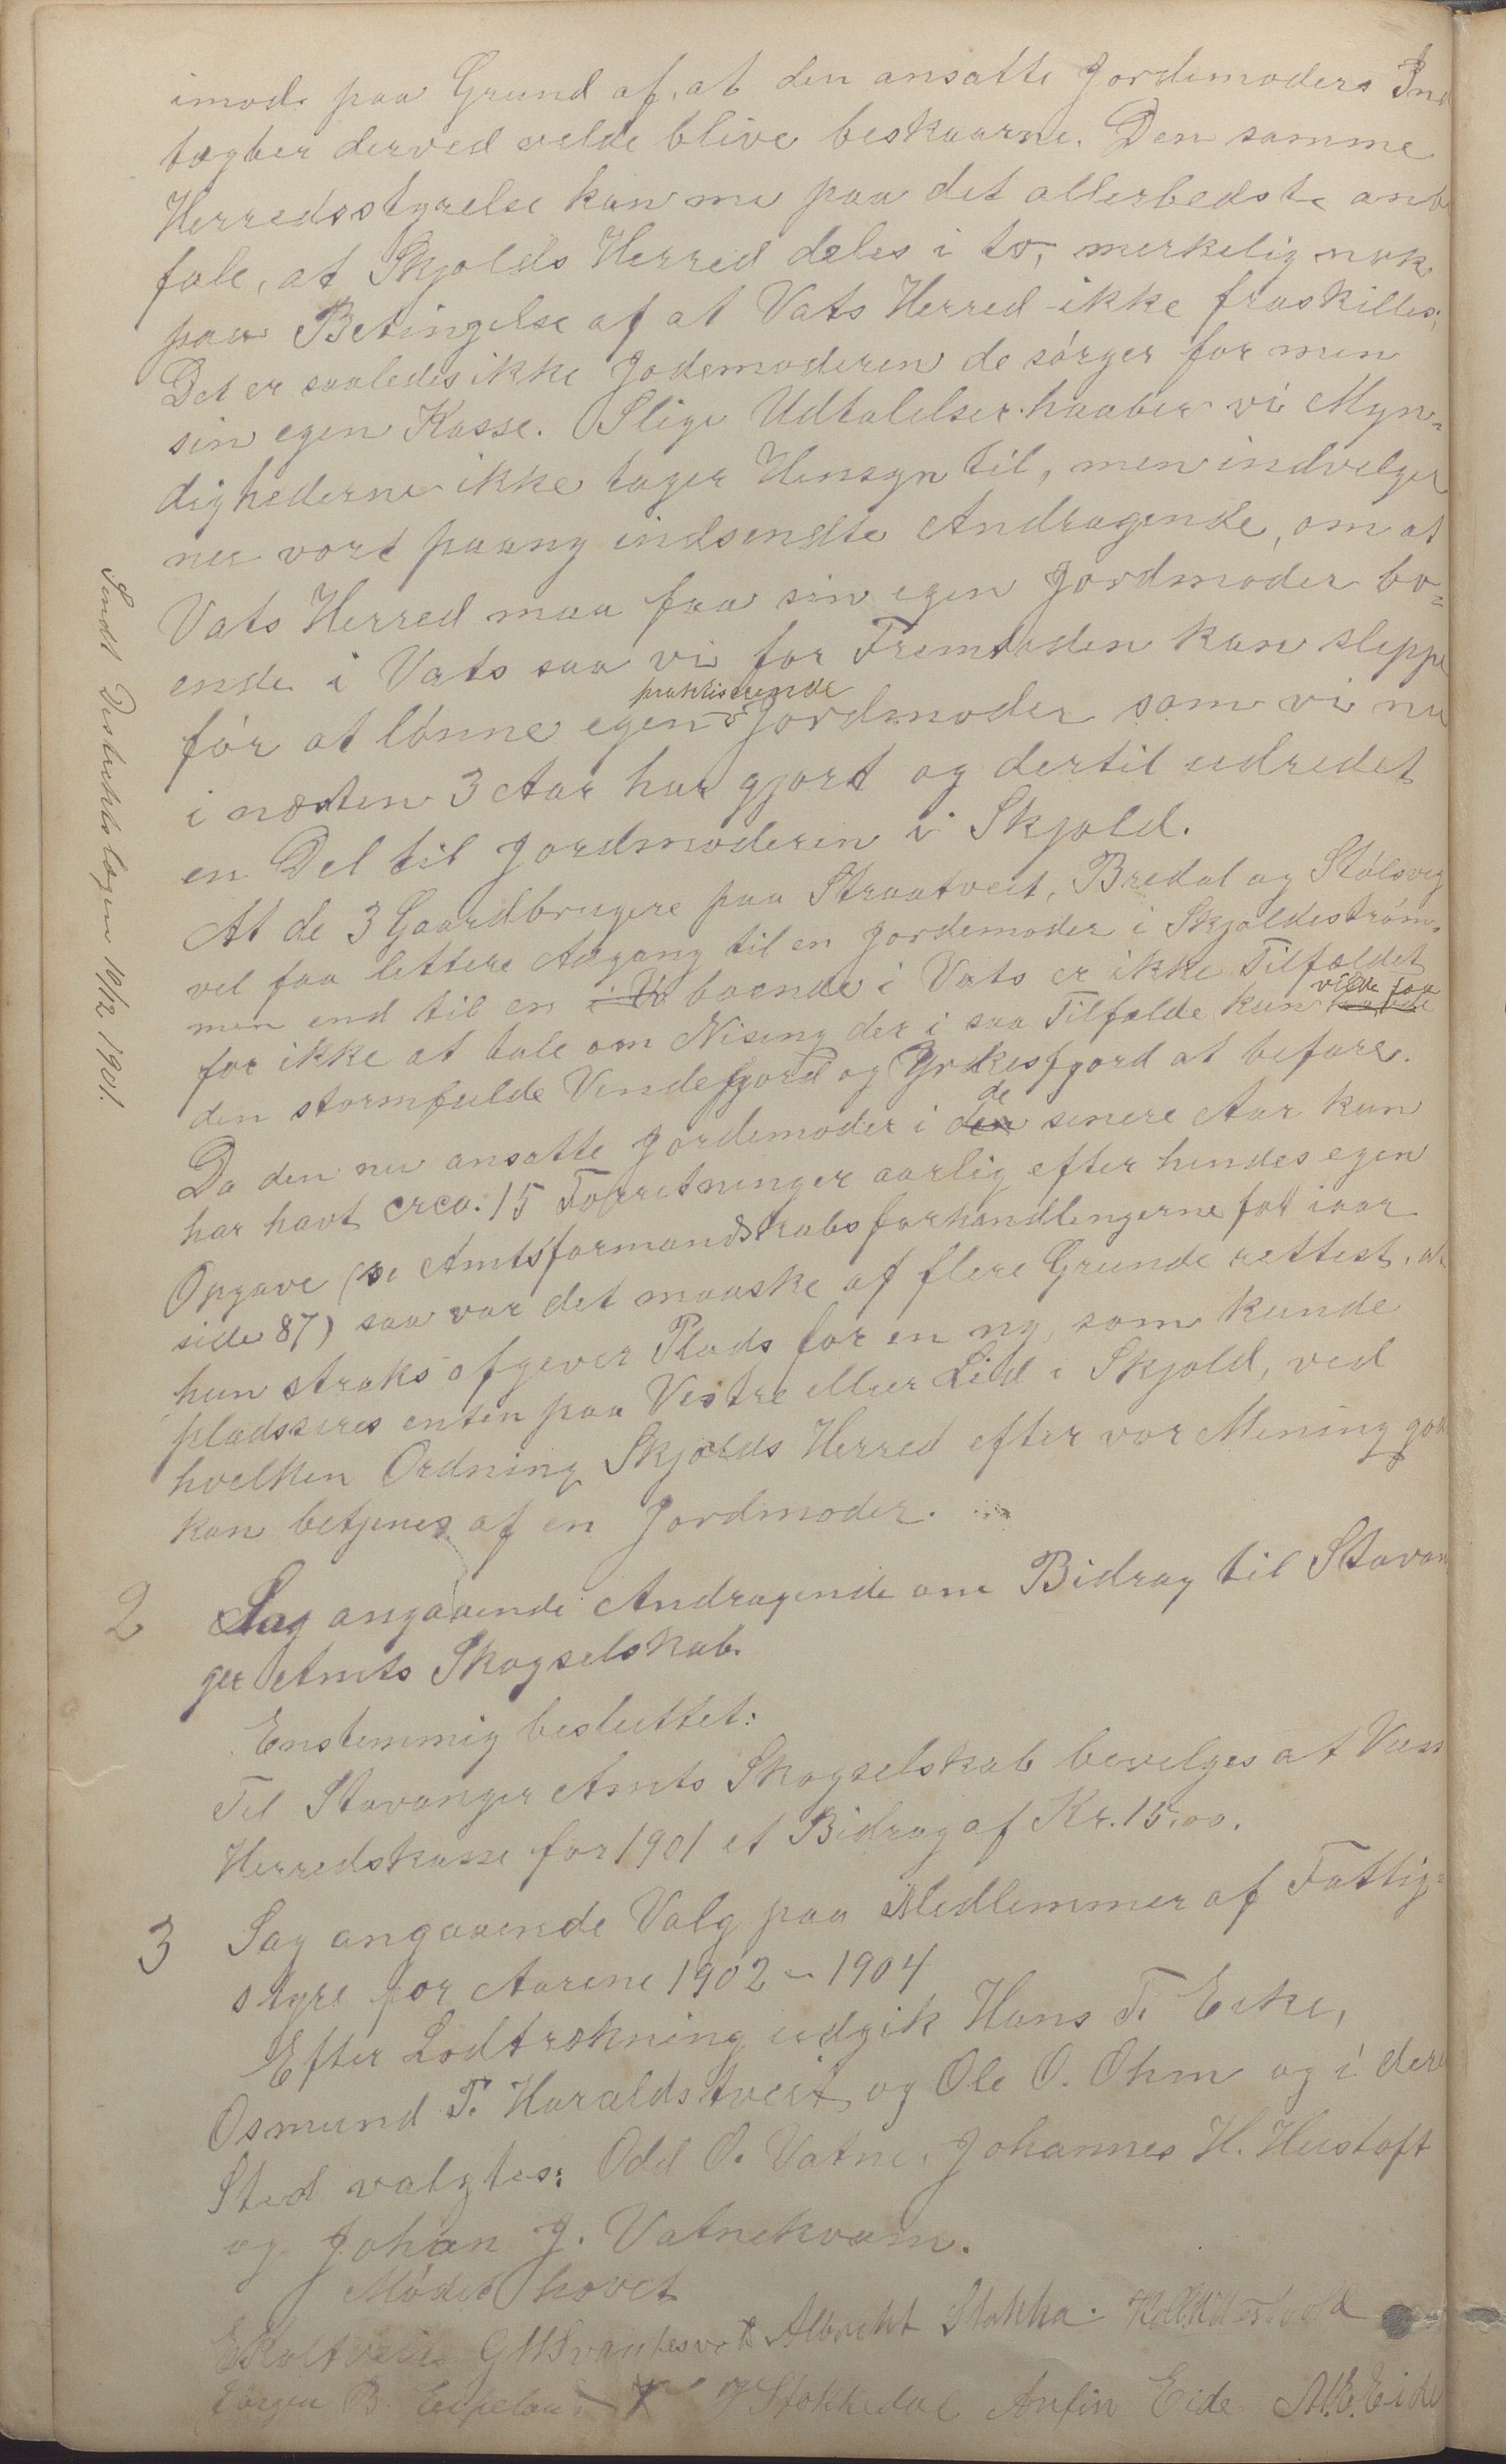 imod paa Grund af, at den ansatte Jordemoders Ind
tægter derved vilde blive beskaarne. Den samme
Herredsstyrelse kan nu paa det allerbedste anbe
fale, at Skjolds Herred deles i to, merkelig nok
paa Betingelse af at Vats Herred ikke fraskilles;
Det er saaledes ikke Jodemoderen de sørger for men
sin egen Kasse. Slige Udtalelser haaber vi Myn=
dighederne ikke tager Hensyn til, men indvelger
nu vort paany indsendte Andragende, om at
Vats Herred maa faa sin egen Jordmoder bo=
ende i Vats saa vi for Fremtiden kan sleppe
praktiserende
før at lønne egen Jordmoder som vi nu
i næsten 3 Aar har gjort og dertil udredet
en Del til Jordmoderen i Skjold.
At de 3 Gaardbrugere paa Straatveit, Bredal og Stølsvig
vel faa lettere Adgang til en Jordemoder i Skjoldestrøm-
men end til en i Va boende i Vats er ikke Tilfældet
vilde faa
for ikke at tale om Nising der i saa Tilfælde kun havde
den stormfulde Vindefjord og Yrkesfjord at befare.
de
Da den nu ansatte Jordemoder i den senere Aar kun
har havt circa. 15 Forretninger aarlig efter hendes egen
Opgave (se Amtsformandskabsforhandlingerne for iaar
side 87) saa var det maaske af flere Grunde rettest, at
hun straks afgiver Plads for en ny, som kunde
pladsseres enten paa Vestre eller Lid i Skjold, ved
hvilken Ordning Skjolds Herred efter vor Mening godt
kan betjenes af en Jordmoder.
Sendt Distriktslægen 19/12 1901.
2 Sag angaaende Andragende om Bidrag til Stavan
ger Amts Skogselskab.
Enstemmig besluttet:
Til Stavanger Amts Skogselskab bevilges af Vats
Herredskasse for 1901 et Bidrag af Kr. 15,00.
3 Sag angaaende Valg paa Medlemmer af Fattig=
styre for Aarene 1902 – 1904
Efter Lodtrækning udgik Hans T. Eike,
Osmund T. Haraldstveit og Ole O. Ohm og i deres
Sted valgtes: Odd O. Vatne, Johannes H. Hustoft
og Johan J. Vatnekvam.
Mødet hævet
Albrecht Stakka
Jørgen B. J Stokkedal Anfin Eide M. E. Eide